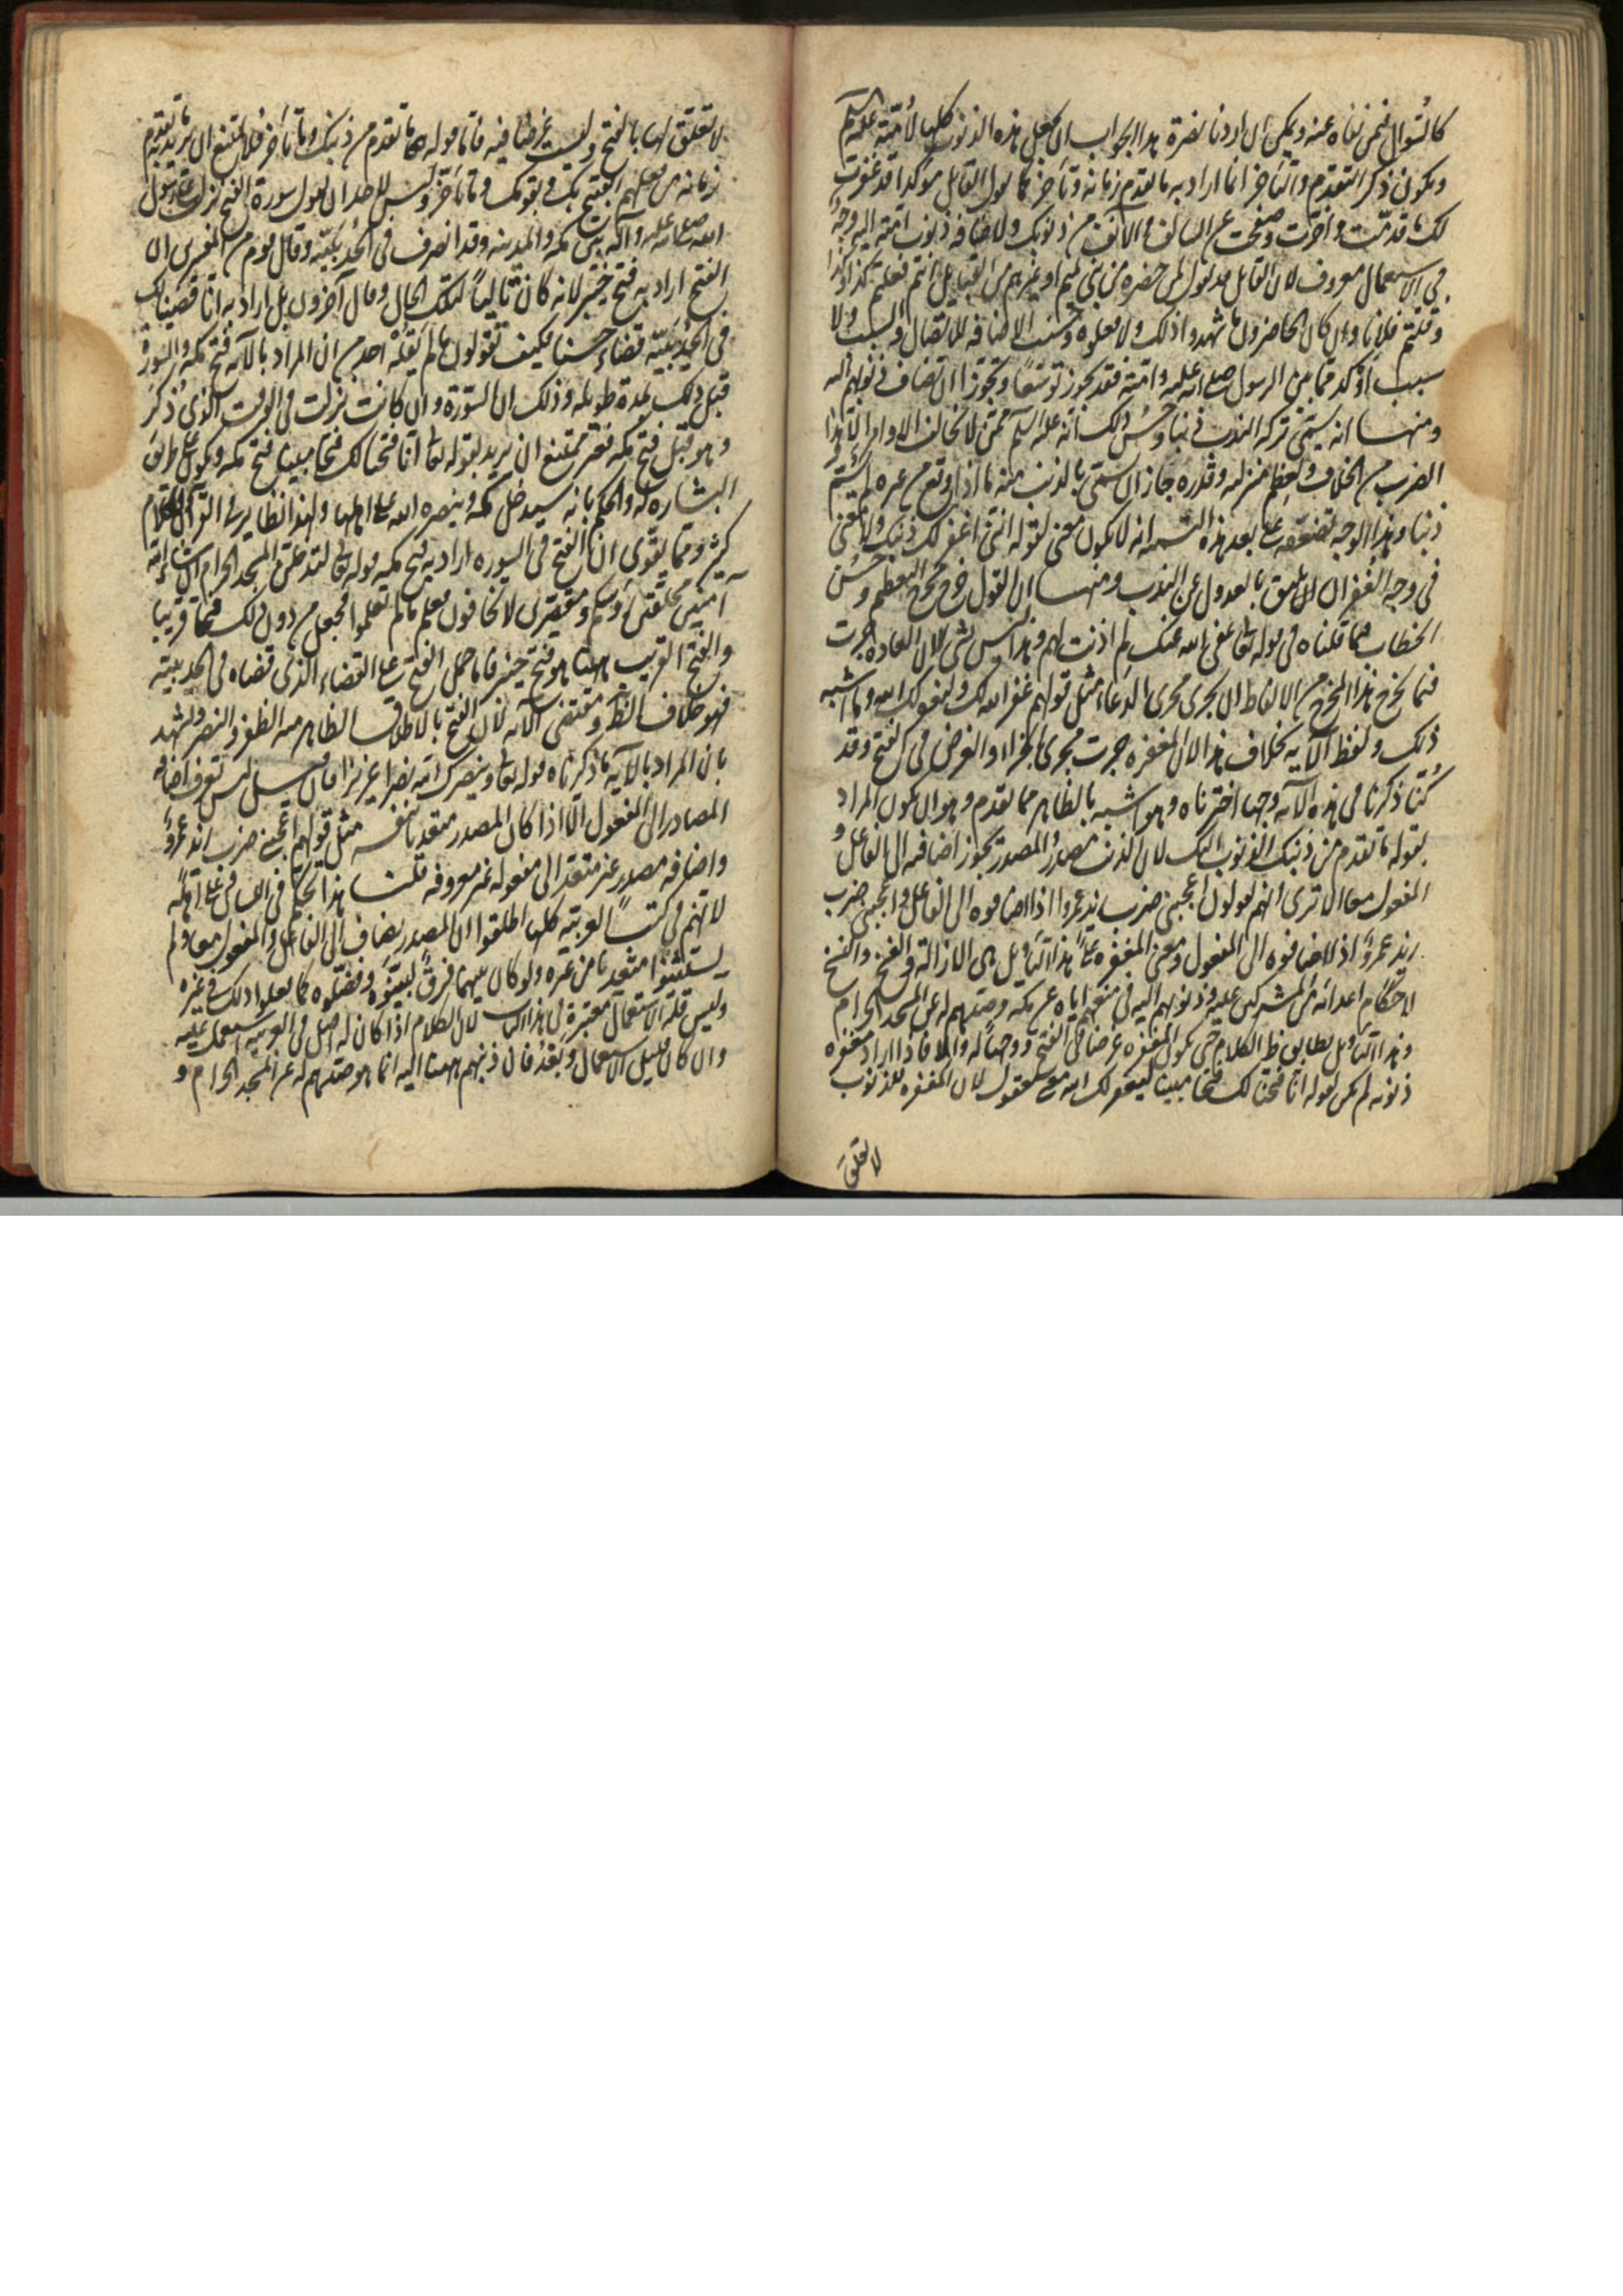 كالسؤال فنحن نناه عنه ويمكن ان اردنا نصرة هذا الجواب ان نجعل هذه الذنوب كلها لامته عليه السلم
ويكون ذكر التقدم والتاخر انما اراد به ما تقدم زمانه وتاخر كما يقول القايل موكدا قد غفرت
لك ما قدمت واخرت وصفحت عن السالف والانف من ذنوبك ولاضافه ذنوب امته اليه وجه
في الاستعمال معروف لان القايل قد يقول لمن حضره من بني تميم او غيرهم من القبايل انتم فعلتم كذا وكذا
وقتلتم فلانا وان كان الحاضرون ما شهدوا ذلك ولا فعلوه وحسنت الاضافه للاتصال والسبب ولا
سبب اوكد مما بين الرسول صلى الله عليه وامته فقد يجوز توسعا وتجوزا ان تضاف ذنوبهم اليه
ومنها انه سمى تركه الندب ذنبا وحسن ذلك انه عليه السلم ممن لا يخالف الاوامر الا هذا
الضرب من الخلاف ولعظم منزلته وقدره جاز ان يسمى بالذنب منه ما اذا وقع من غيره لم يسم
ذنبا وهذا الوجه يضعفه على بعد هذه التسمية انه لا يكون معنى لقوله انني اغفر لك ذنبك ولا معنى
في وجه الغفران يليق بالعدول عن الندب ومنها ان القول خرج مخرج التعظيم وحسن
الخطاب كما قلناه في قوله تعالى عفى الله عنك لم اذنت لهم وهذا ليس بشي لان العاده جرت
فيما يخرج هذا المخرج من الالفاظ ان يجرى مجرى الدعاء مثل قولهم غفر الله لك وليغفر لك الله وما اشبه
ذلك ولفظ الآيه بخلاف هذا لان المغفره جرت مجرى الجزاء والغرض في الفتح وقد
كنا ذكرنا في هذه الآيه وجها اخترناه وهو اشبه بالظاهر مما تقدم وهو ان يكون المراد
بقوله ما تقدم من ذنبك الذنوب اليك لان الذنب مصدر والمصدر يجوز اضافته الى الفاعل و
المفعول معا الا ترى انهم يقولون اعجبني ضرب زيد عمروا اذا اضافوه الى الفاعل واعجبني ضرب
زيد عمرو اذا اضافوه الى المفعول ومعنى المغفره على هذا التاويل هى الازالة والفسخ والنسخ
لاحكام اعدائه من المشركين عليه وذنوبهم اليه في منعهم اياه عن مكه وصدهم له عن المسجد الحرام
وهذا التاويل يطابق ظ الكلام حتى تكون المغفره غرضا في الفتح ووجها له والا فاذا اراد مغفره
ذنوبه لم يكن لقوله انا فتحنا لك فتحا مبينا ليغفر لك الله معنى معقول لان المغفره للذنوب
لا تعلق
لا تعلق لها بالفتح وليست غرضا فيه فاما قوله ما تقدم من ذنبك وما تاخر فلا يمتنع ان يريد به ما تقدم
زمانه من فعلهم القبيح بك وبقومك وما تاخر وليس لاحد ان يقول سورة الفتح نزلت على رسول
الله صلى الله عليه وآله بين مكه والمدينه وقد انصرف من الحديبيه وقال قوم من المفسرين ان
الفتح اراد به فتح خيبر لانه كان تاليا لتلك الحال وقال آخرون بل اراد به انا قضينا لك
في الحديبيه قضاء حسنا فكيف تقولون ما لم يقله احد من ان المراد بالآيه فتح مكه والسورة
قبل ذلك بمدة طويله وذلك ان السورة وان كانت نزلت في الوقت الذي ذكر
وهو قبل فتح مكه فغير ممتنع ان يريد بقوله تعالى انا فتحنا لك فتحا مبينا فتح مكه ويكون على طريق
البشاره له والحكم بانه سيدخل مكه وينصره الله على اهلها ولهذا نظاير في القرآن والكلام
كثير ومما يقوى ان الفتح في السوره اراد به فتح مكه قوله تعالى لتدخلن المسجد الحرام ان شاء الله
آمنين محلقين رؤسكم ومقصرين لا تخافون فعلم ما لم تعلموا فجعل من دون ذلك فتحا قريبا
والفتح القريب هاهنا هو فتح خيبر فاما حمل الفتح على القضاء الذى قضاه في الحديبيه
فهو خلاف الظ ومقتضى الآيه لان الفتح بالاطلاق الظاهر منه الظفر والنصر ويشهد
بان المراد بالآيه ما ذكرناه قوله تعالى وينصرك الله نصرا عزيزا فان قيل ليس تعرف اضافه
المصادر الى المفعول الا اذا كان المصدر متعديا بنفسه مثل قولهم اعجبني ضرب زيد عمرو
واضافه مصدر غير متعد الى مفعوله غير معروفه قلنا هذا تحكم في اللسان وعلى اهله
لانهم في كتب العربيه كلها اطلقوا ان المصدر يضاف الى الفاعل والمفعول معا ولم
يستثنوا متعديا من غيره ولو كان بينهما فرق لبينوه وفصلوه كما فعلوا ذلك في غيره
وليس قلة الاستعمال معتبرة في هذا الباب لان الكلام اذا كان له اصل في العربيه استعمل عليه
وان كان قليل الاستعمال وبعد فان ذنبهم هاهنا اليه انما هو صدهم له عن المسجد الحرام و